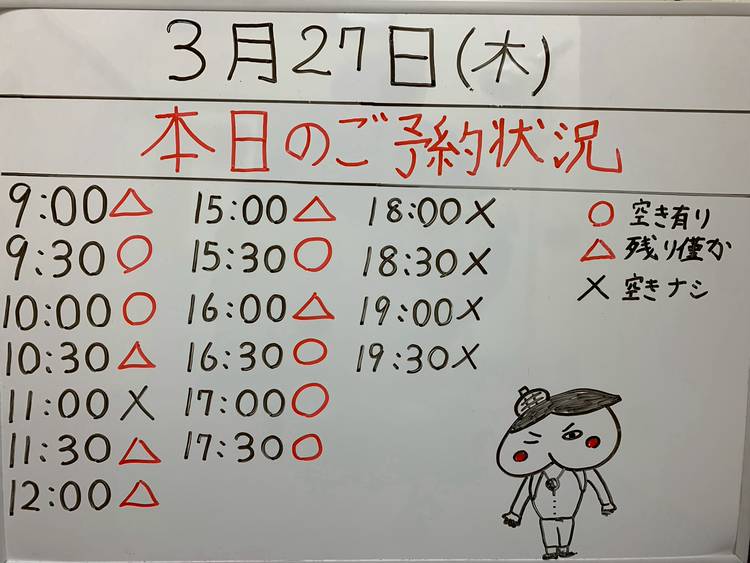 3月27日(木)
本日のご予約状況
9:00△ 15:00△ 18:00× ○ 空き有り
9:30○ 15:30○ 18:30× △ 残り僅か
10:00○ 16:00△ 19:00× × 空きナシ
10:30△ 16:30○ 19:30×
11:00× 17:00○
11:30△ 17:30○
12:00△